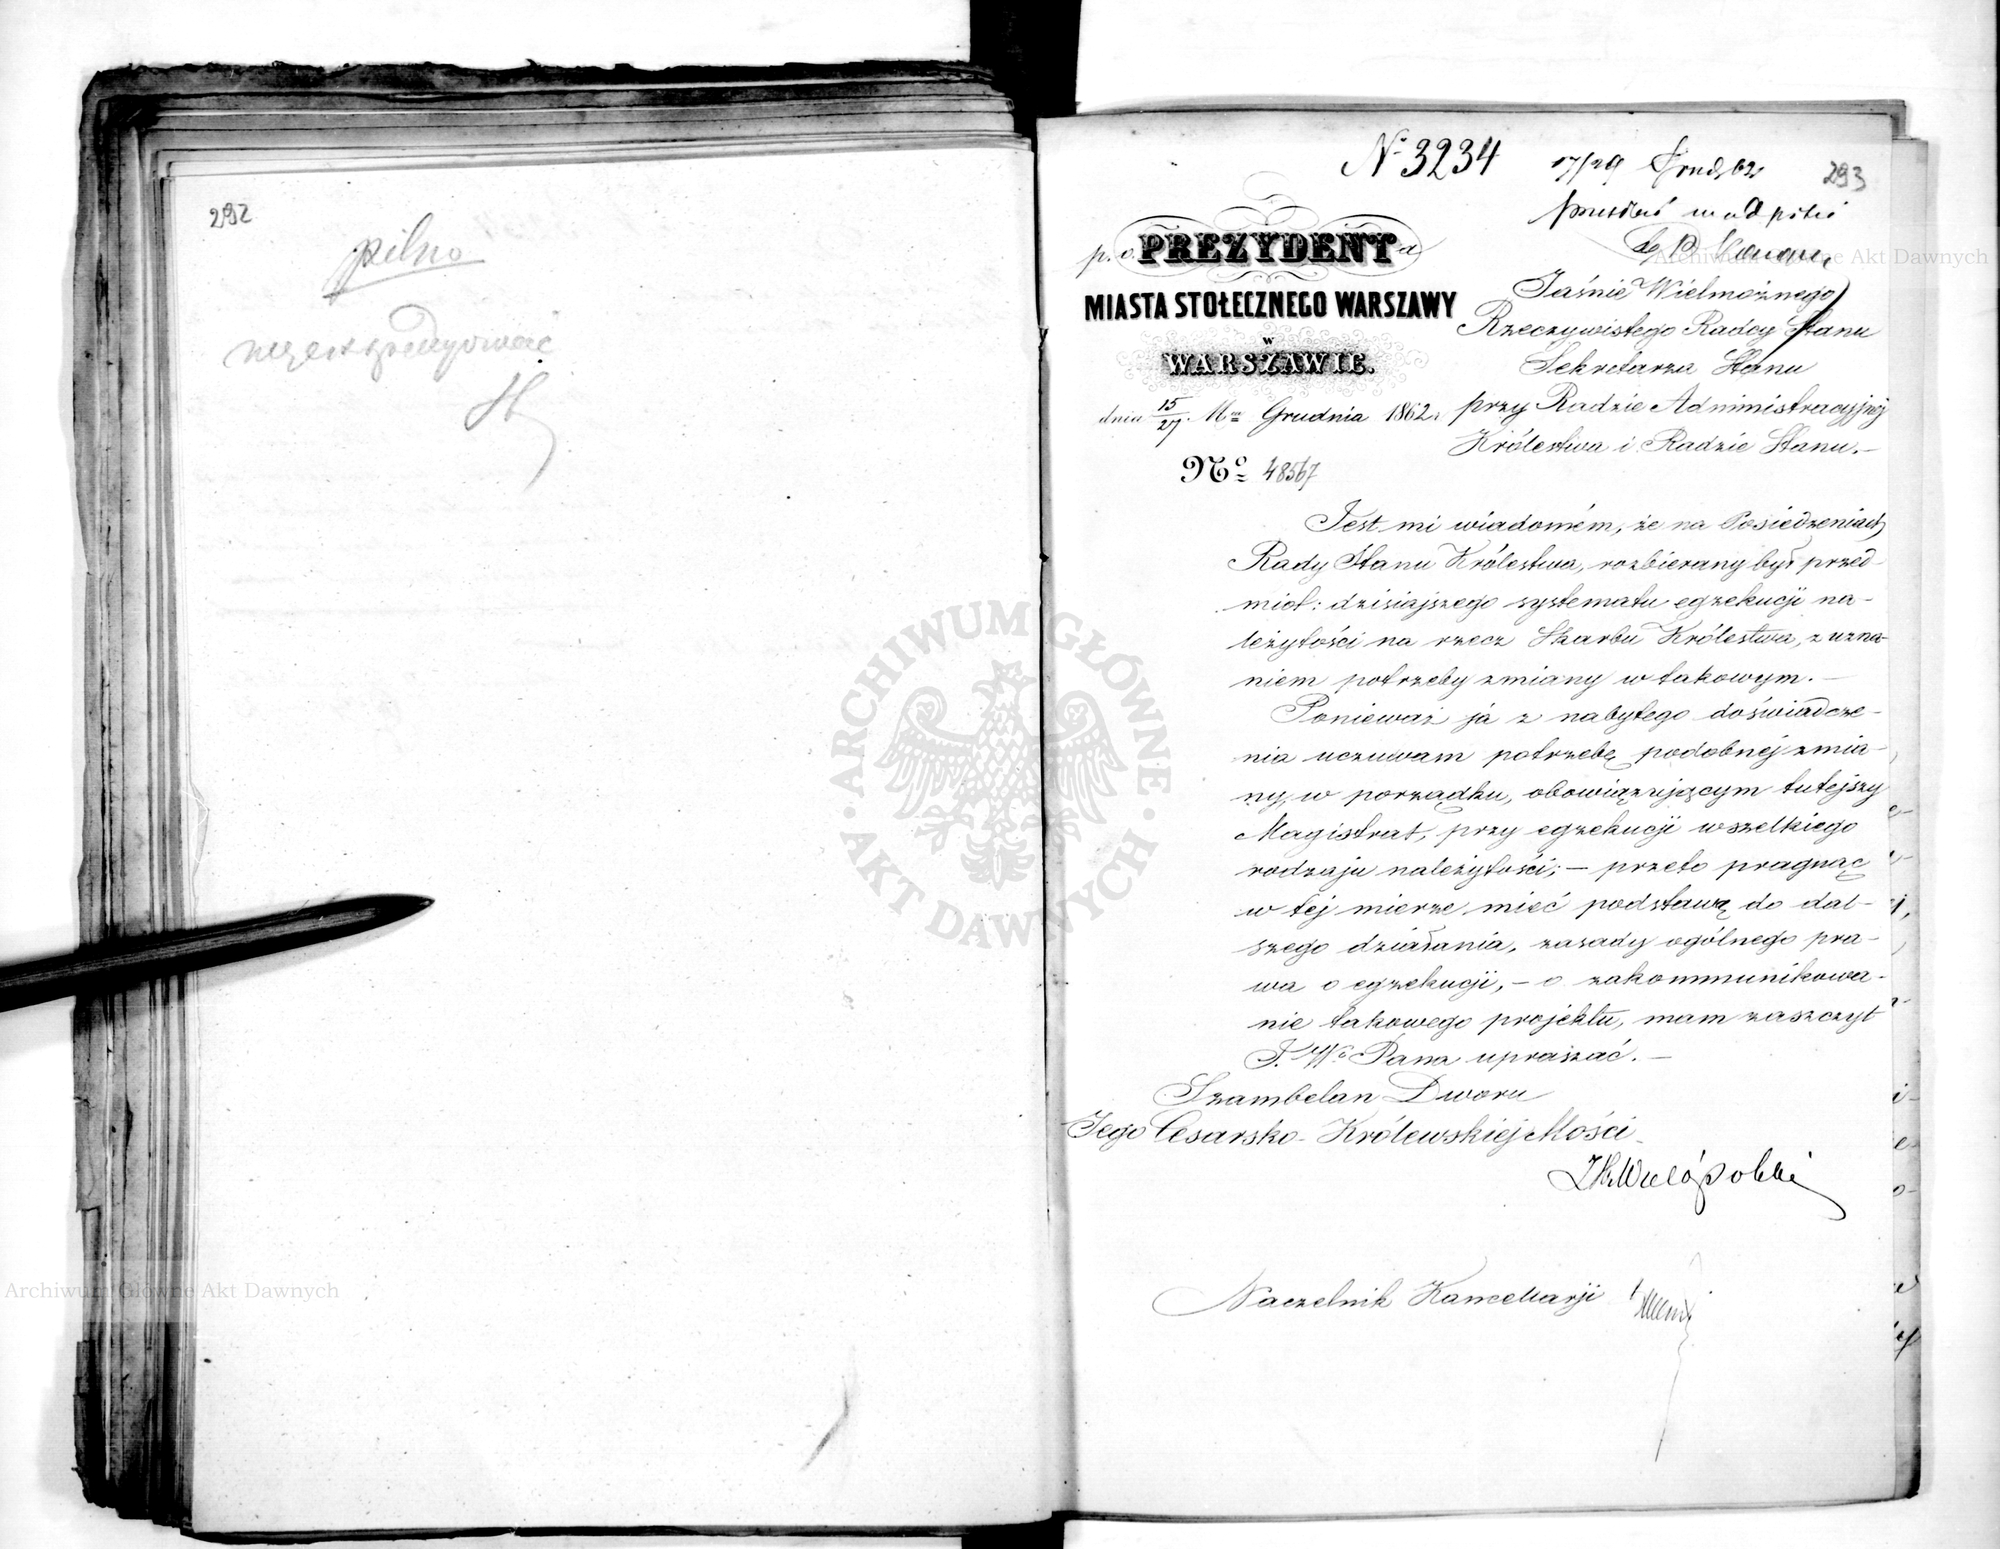 292
pilno
№ 3234
17/29 Grud. 62
293
p. o. PREZYDENTa
MIASTA STOŁECZNEGO WARSZAWY
W
WARSZAWIE.
dnia 15/27 Mca Grudnia 1862.
№ 48567
Jaśnie Wielmożnego
Rzeczywistego Radcy Stanu
Sekretarza Stanu
przy Radzie Administracyjnej
Królestwa i Radzie Stanu.
Jest mi wiadomém, że na Posiedzeniach
Rady Stanu Królestwa, rozbierany był przed-
miot: dzisiajszego systematu egzekucji na-
leżytości na rzecz Skarbu Królestwa, z uzna-
niem potrzeby zmiany w takowym. —
Ponieważ já z nabytego doświadcze-
nia uczuwam potrzebę podobnej zmia-
ny, w porządku, obowiązującym tutejszy
Magistrat, przy egzekucji wszelkiego
rodzaju należytości; — przeto pragnąc
w tej mierze mieć podstawę do dal-
szego działania, zasady ogólnego pra-
wa o egzekucji, — o zakommunikowa-
nie takowego projektu, mam zaszczyt
J. W° Pana upraszać. —
Szambelan Dworu
Jego Cesarsko-Królewskiej Mości
Wielopolski
Naczelnik Kancellarji
ARCHIWUM GŁÓWNE · AKT DAWNYCH ·
Archiwum Główne Akt Dawnych
Archiwum Główne Akt Dawnych